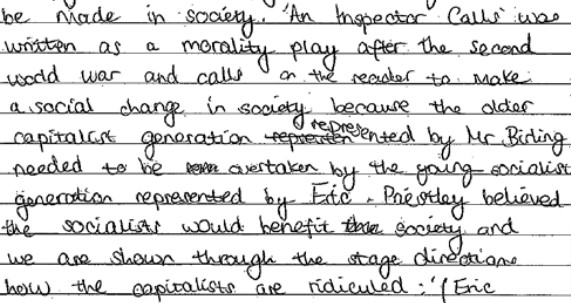 be made in society. 'An Inspector Calls' was
written as a morality play after the second
world war and calls on the reader to make
a social change in society because the older
capitalist generation represented by Mr Birling
needed to be overtaken by the young socialist
generation represented by Eric. Priestley believed
the socialists would benefit society and
we are shown through the stage directions
how the capitalists are ridiculed: '(Eric